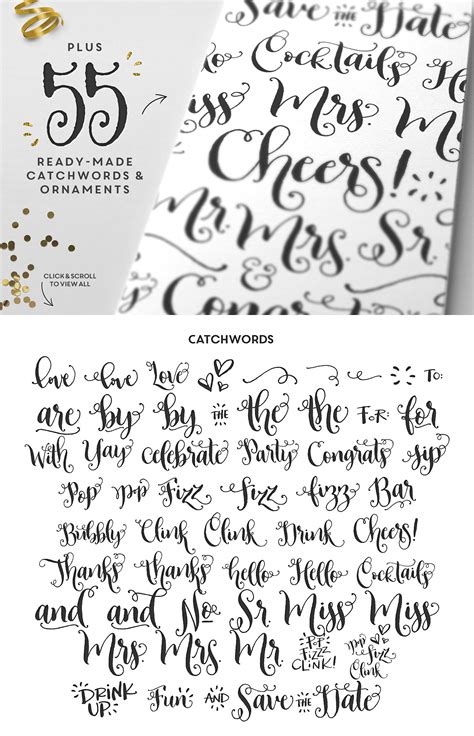 PLUS
55
READY-MADE
CATCHWORDS &
ORNAMENTS
CLICK & SCROLL
TO VIEW ALL
Save THE Date
Cocktails
Miss Mrs.
Cheers!
Mr Mrs. Sr.
&
CATCHWORDS
love love Love TO:
are by by THE the the FOR: for
With Yay celebrate Party Congrats sip
Pop pop Fizz fizz fizz Bar
Bubbly Clink Clink Drink Cheers!
Thanks thanks hello Hello Cocktails
and and No Sr Miss Miss
Mrs. Mrs. Mr
POP
FIZZ
CLINK!
pop
fizz
Clink
DRINK
UP Fun AND Save THE Date